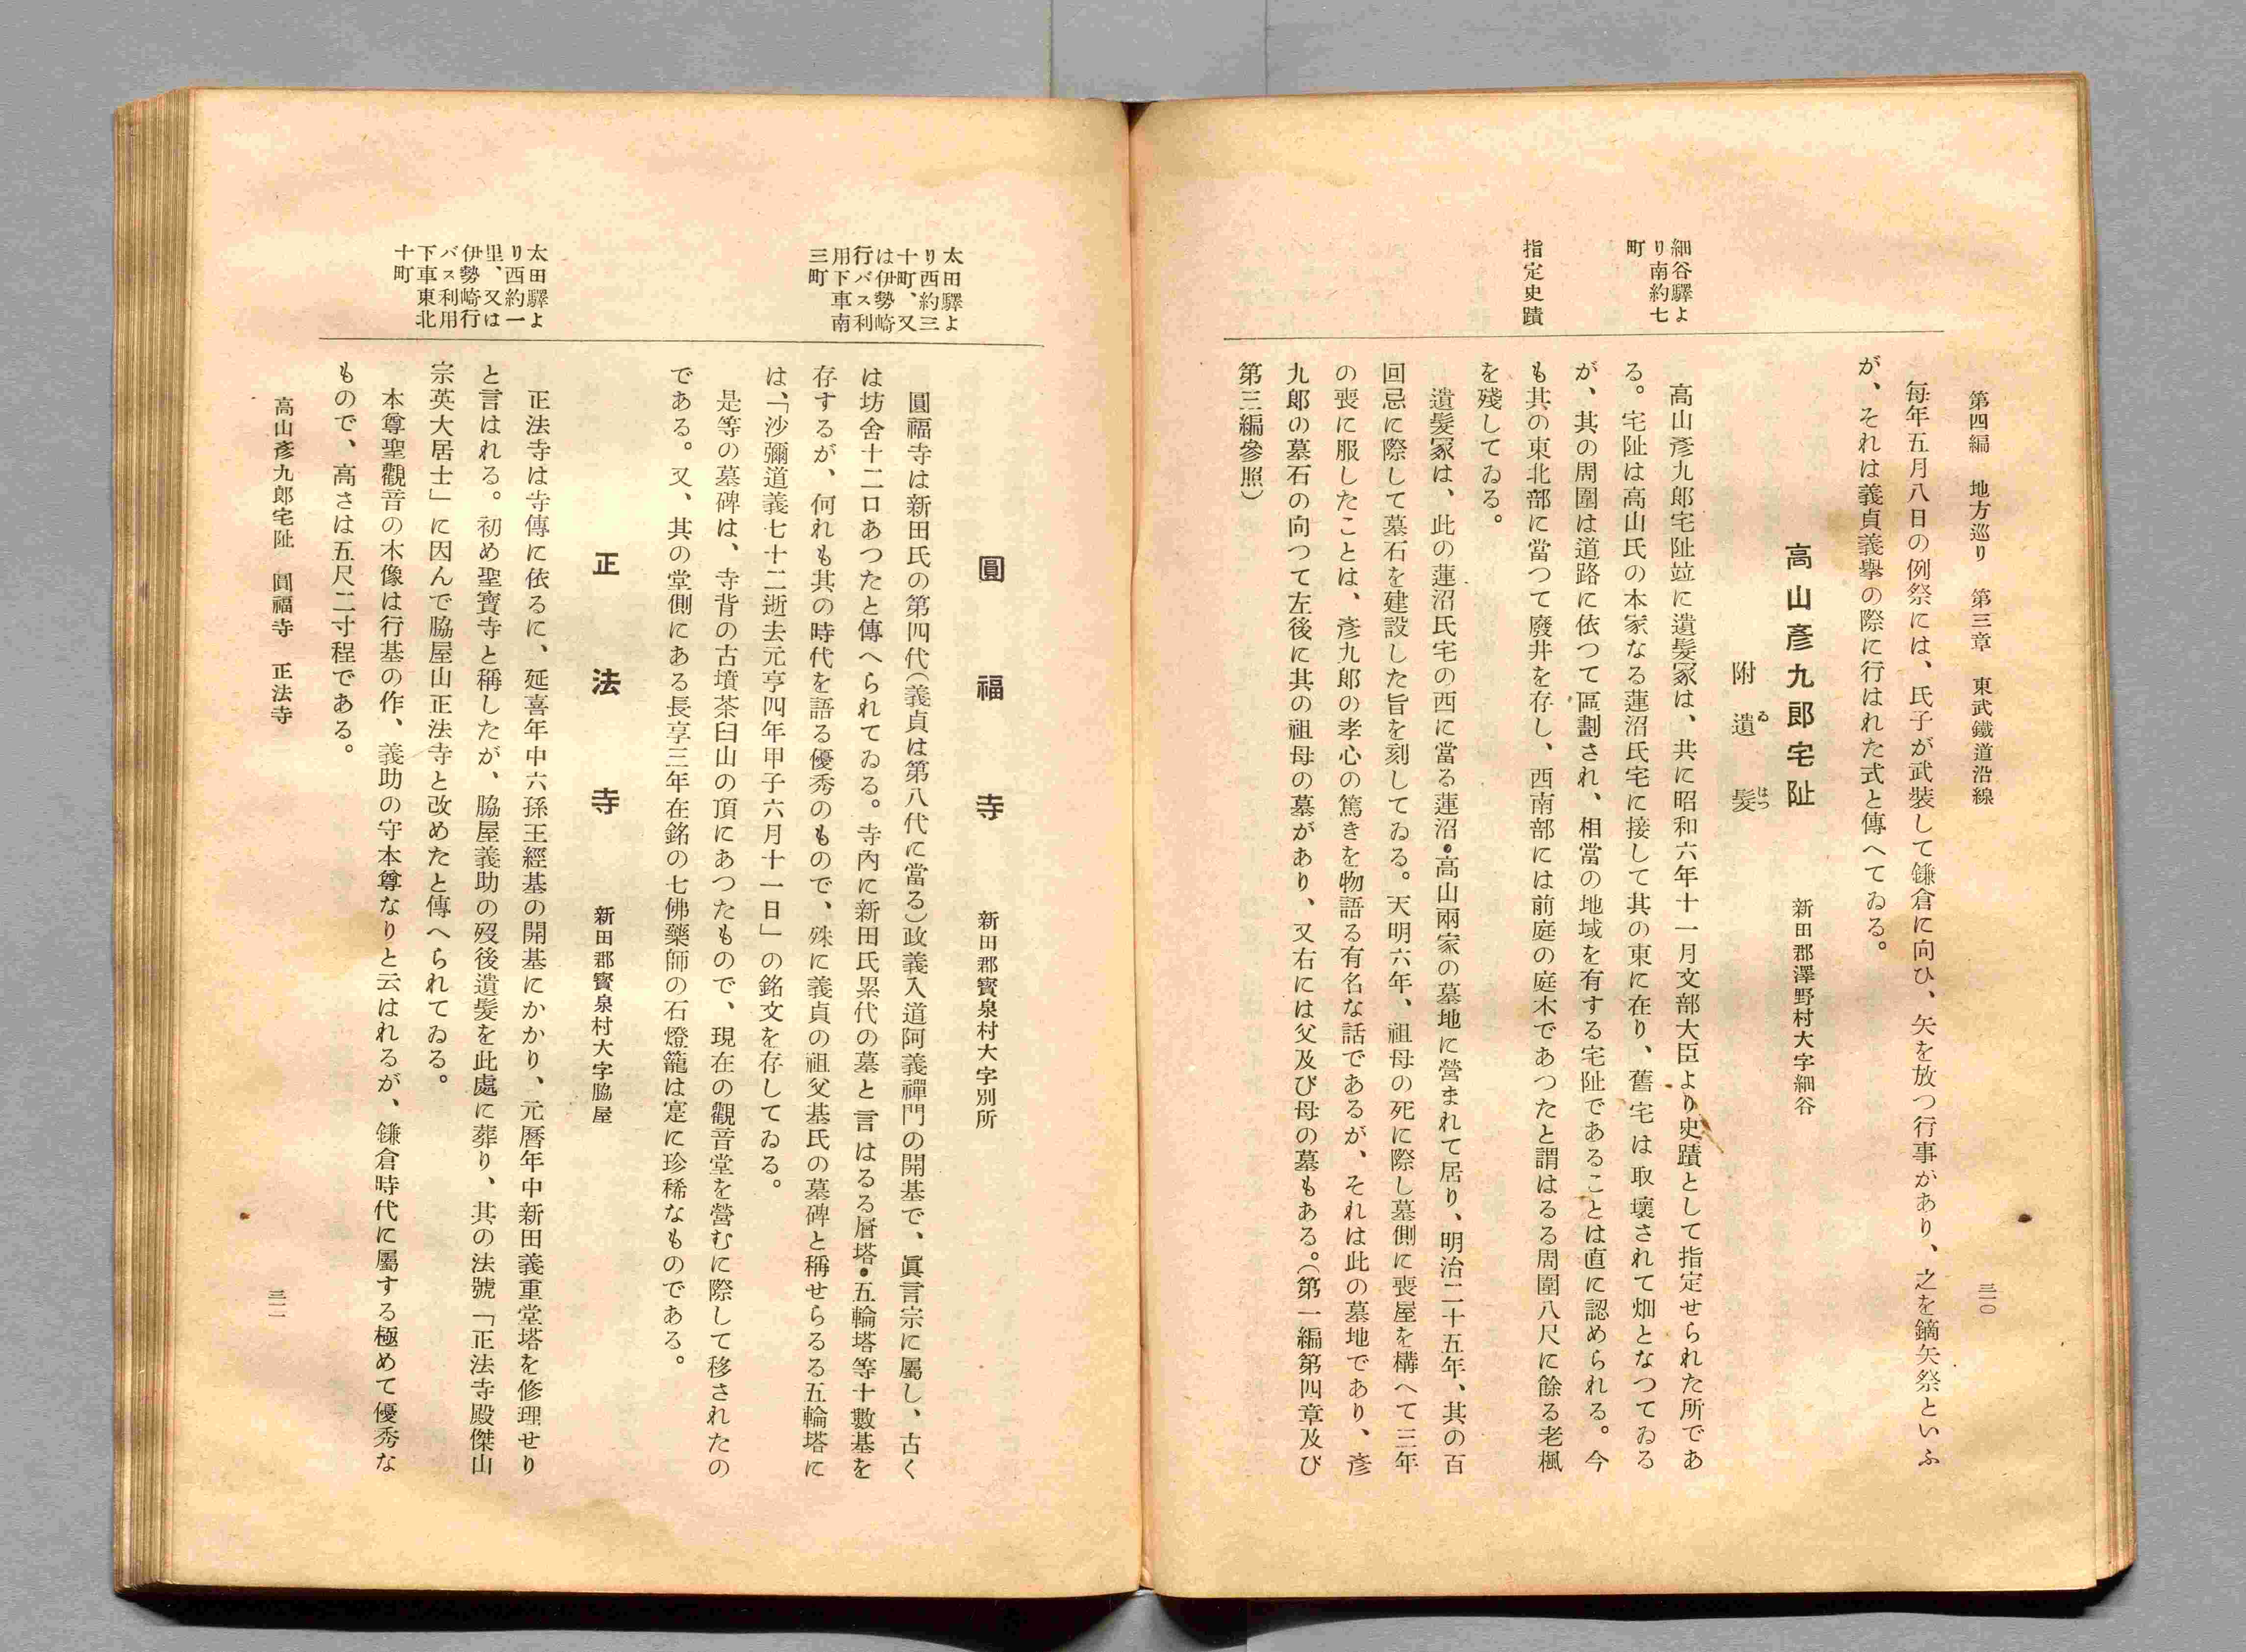 第四編　地方巡り　第三章　東武鐵道沿線
三一〇
每年五月八日の例祭には、氏子が武裝して鎌倉に向ひ、矢を放つ行事があり、之を鏑矢祭といふ
が、それは義貞義擧の際に行はれた式と傳へてゐる。
高山彥九郞宅阯
新田郡澤野村大字細谷
附　遺髮
ゐ　はつ
細谷驛よ
り南約七
町
高山彥九郞宅阯竝に遺髮冢は、共に昭和六年十一月文部大臣より史蹟として指定せられた所であ
る。宅阯は高山氏の本家なる蓮沼氏宅に接して其の東に在り、舊宅は取壞されて畑となつてゐる
が、其の周圍は道路に依つて區劃され、相當の地域を有する宅阯であることは直に認められる。今
指定史蹟
も其の東北部に當つて廢井を存し、西南部には前庭の庭木であつたと謂はるる周圍八尺に餘る老楓
を殘してゐる。
遺髮冢は、此の蓮沼氏宅の西に當る蓮沼・高山兩家の墓地に營まれて居り、明治二十五年、其の百
回忌に際して墓石を建設した旨を刻してゐる。天明六年、祖母の死に際し墓側に喪屋を構へて三年
の喪に服したことは、彥九郞の孝心の篤きを物語る有名な話であるが、それは此の墓地であり、彥
九郞の墓石の向つて左後に其の祖母の墓があり、又右には父及び母の墓もある。（第一編第四章及び
第三編參照）
圓福寺
新田郡寳泉村大字別所
太田驛よ
り西約三
十町、又
は伊勢崎
行バス利
用下車南
三町
圓福寺は新田氏の第四代（義貞は第八代に當る）政義入道阿義禪門の開基で、眞言宗に屬し、古く
は坊舍十二口あつたと傳へられてゐる。寺內に新田氏累代の墓と言はるる層塔・五輪塔等十數基を
存するが、何れも其の時代を語る優秀のもので、殊に義貞の祖父基氏の墓碑と稱せらるる五輪塔に
は、「沙彌道義七十二逝去元亨四年甲子六月十一日」の銘文を存してゐる。
是等の墓碑は、寺背の古墳茶臼山の頂にあつたもので、現在の觀音堂を營むに際して移されたの
である。又、其の堂側にある長享三年在銘の七佛藥師の石燈籠は寔に珍稀なものである。
正法寺
新田郡寳泉村大字脇屋
太田驛よ
り西約一
里、又は
伊勢崎行
バス利用
下車東北
十町
正法寺は寺傳に依るに、延喜年中六孫王經基の開基にかかり、元曆年中新田義重堂塔を修理せり
と言はれる。初め聖寳寺と稱したが、脇屋義助の歿後遺髮を此處に葬り、其の法號「正法寺殿傑山
宗英大居士」に因んで脇屋山正法寺と改めたと傳へられてゐる。
本尊聖觀音の木像は行基の作、義助の守本尊なりと云はれるが、鎌倉時代に屬する極めて優秀な
もので、高さは五尺二寸程である。
高山彥九郞宅阯　圓福寺　正法寺
三一一